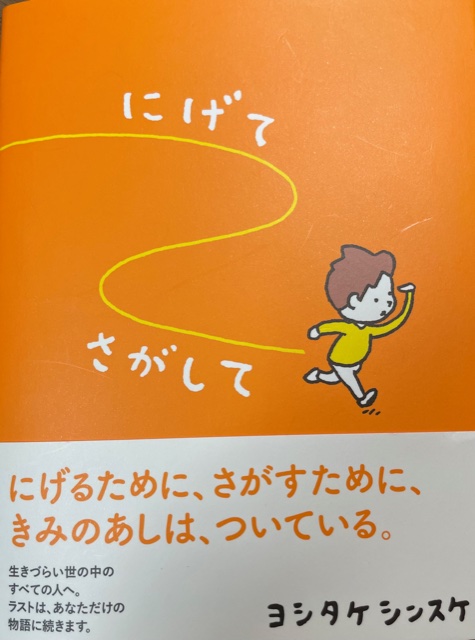 にげて
さがして
にげるために、さがすために、
きみのあしは、ついている。
生きづらい世の中の
すべての人へ。
ラストは、あなただけの
物語に続きます。
ヨシタケ シンスケ